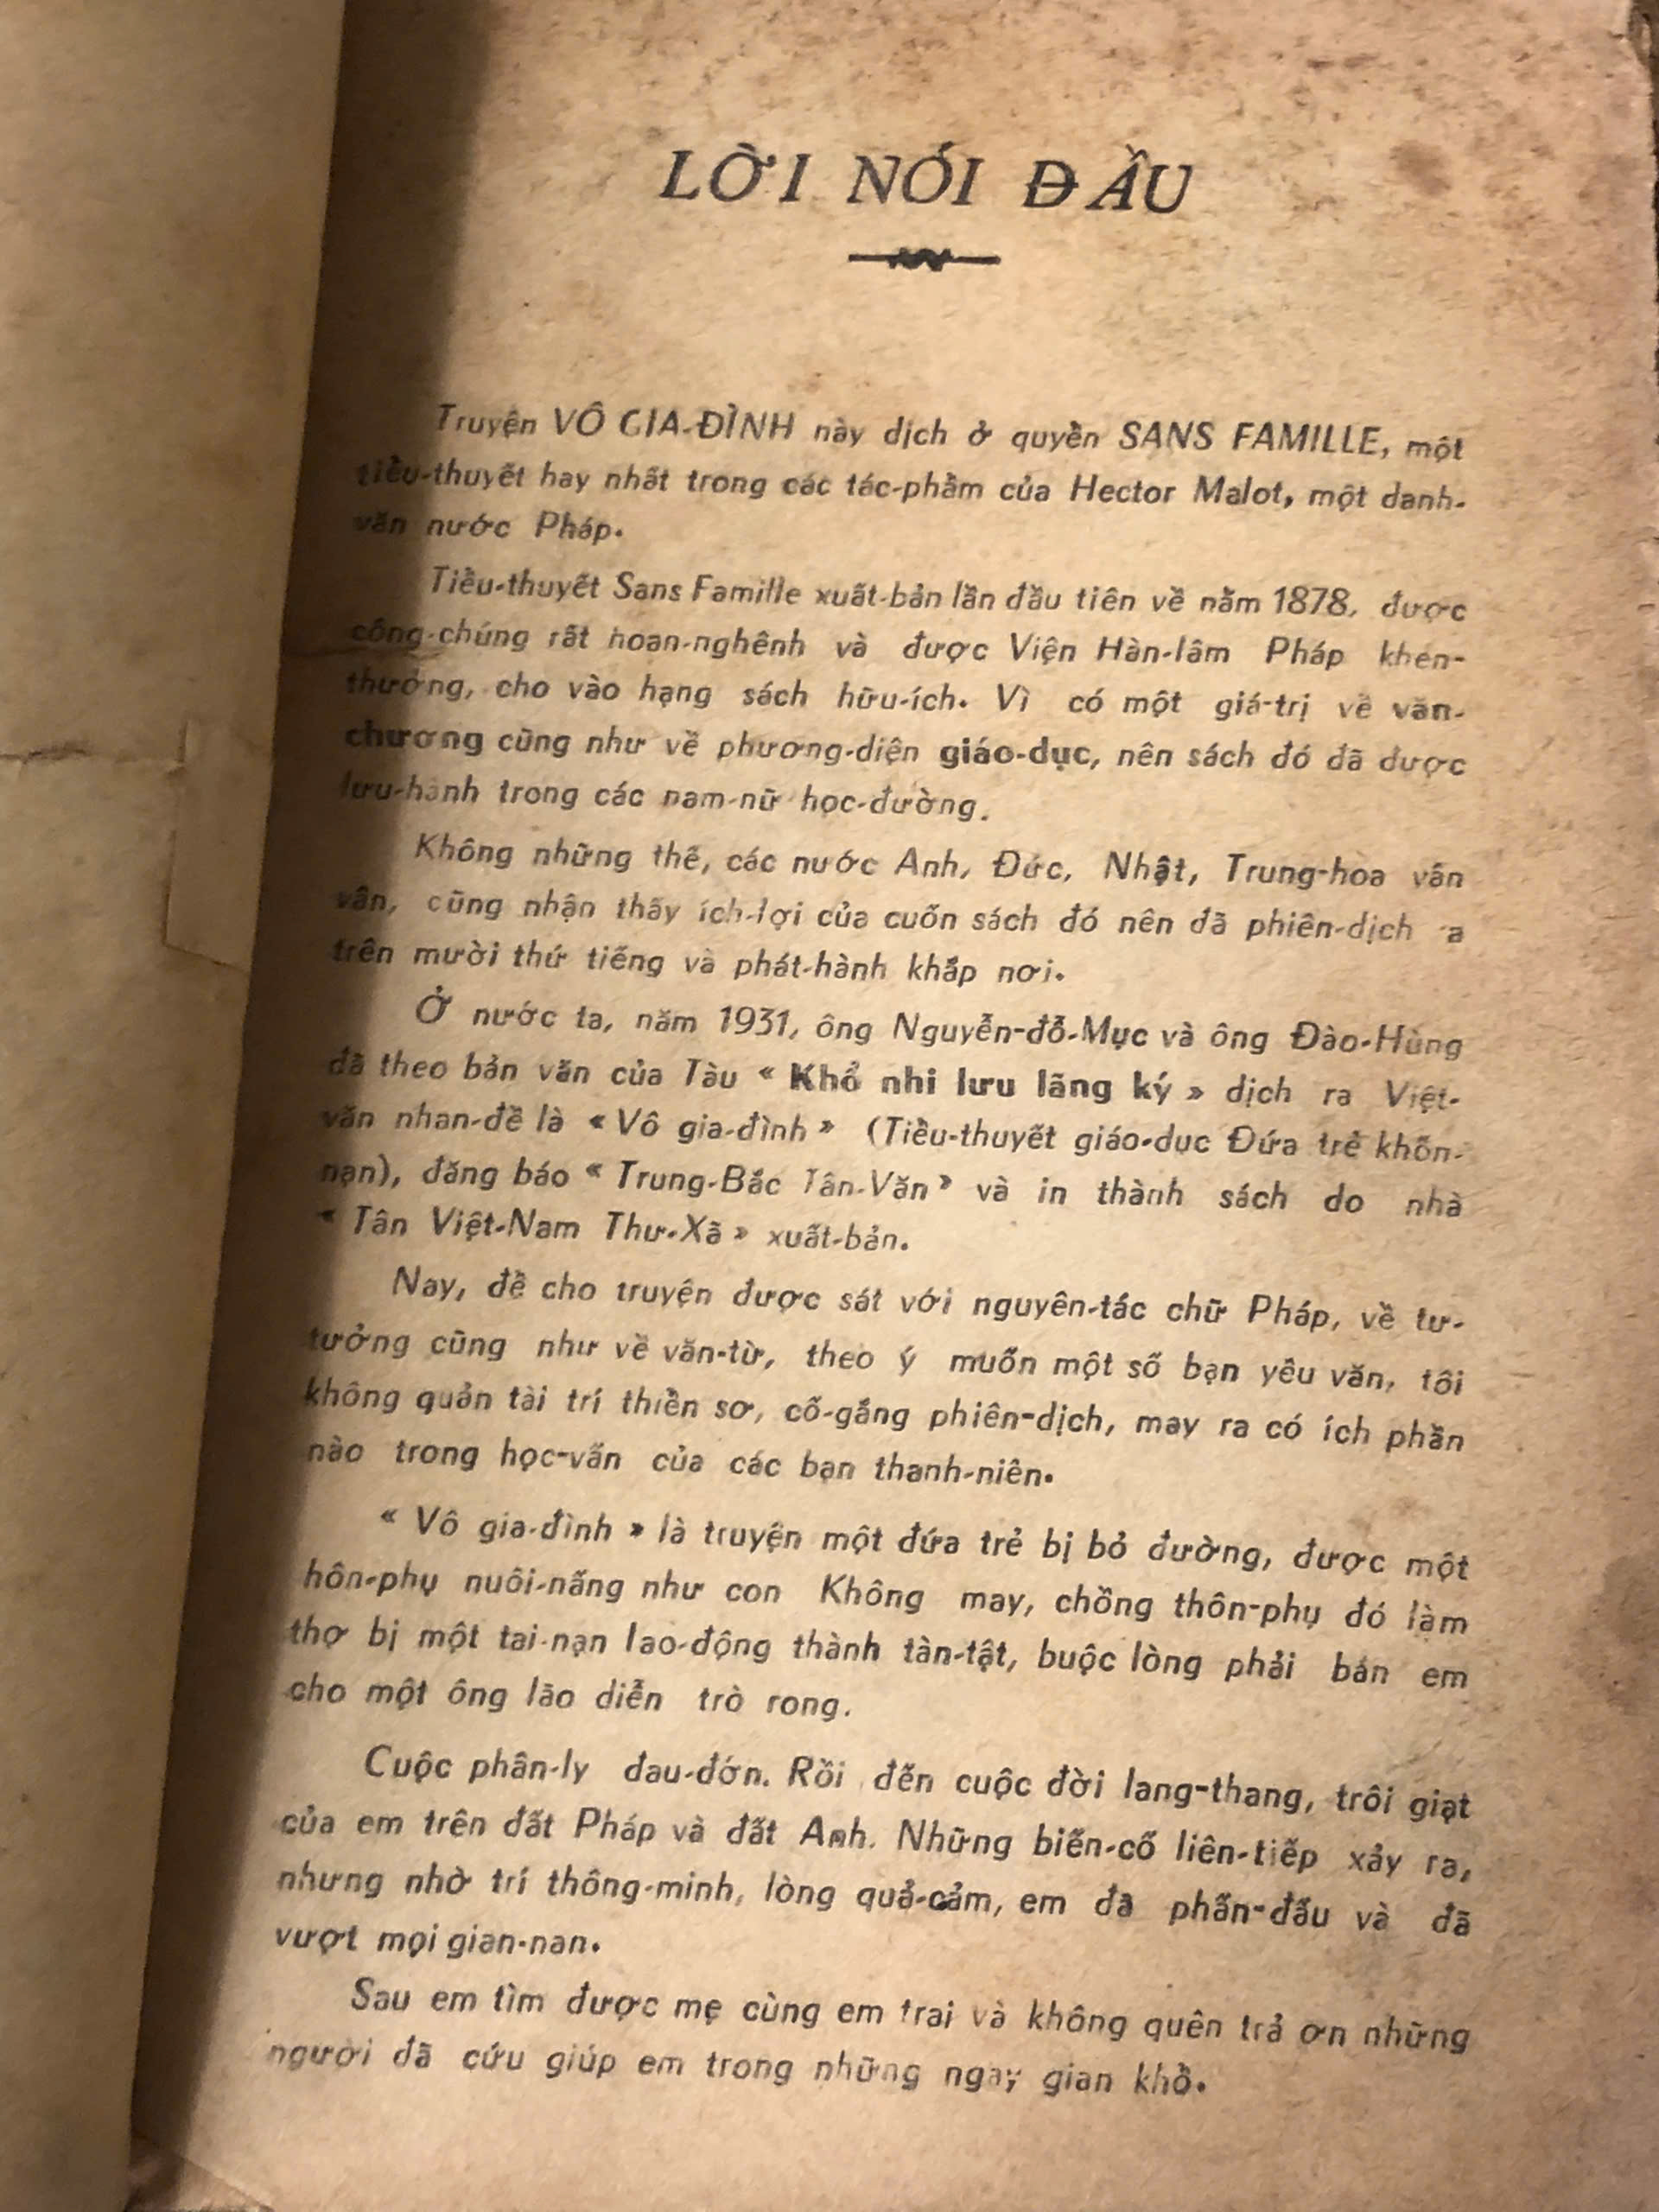 LỜI NÓI ĐẦU
Truyện VÔ GIA-ĐÌNH này dịch ở quyển SANS FAMILLE, một
tiểu-thuyết hay nhất trong các tác-phẩm của Hector Malot, một danh-
văn nước Pháp.
Tiểu-thuyết Sans Famille xuất-bản lần đầu tiên về năm 1878, được
công-chúng rất hoan-nghênh và được Viện Hàn-lâm Pháp khen-
thưởng, cho vào hạng sách hữu-ích. Vì có một giá-trị về văn-
chương cũng như về phương-diện giáo-dục, nên sách đó đã được
lưu-hành trong các nam-nữ học-đường.
Không những thế, các nước Anh, Đức, Nhật, Trung-hòa vân
vân, cũng nhận thấy ích-lợi của cuốn sách đó nên đã phiên-dịch ra
trên mười thứ tiếng và phát-hành khắp nơi.
Ở nước ta, năm 1931, ông Nguyễn-đỗ-Mục và ông Đào-Hùng
đã theo bản văn của Tàu « Khổ nhi lưu lãng ký » dịch ra Việt-
văn nhan-đề là « Vô gia-đình » (Tiểu-thuyết giáo-dục Đứa trẻ khốn-
nạn), đăng báo « Trung-Bắc Tân-Văn » và in thành sách do nhà
« Tân Việt-Nam Thư-Xã » xuất-bản.
Nay, để cho truyện được sát với nguyên-tác chữ Pháp, về tư-
tưởng cũng như về văn-từ, theo ý muốn một số bạn yêu văn, tôi
không quản tài trí thiển sơ, cố-gắng phiên-dịch, may ra có ích phần
nào trong học-vấn của các bạn thanh-niên.
« Vô gia-đình » là truyện một đứa trẻ bị bỏ đường, được một
hôn-phụ nuôi-nấng như con Không may, chồng thôn-phụ đó làm
thợ bị một tai-nạn lao-động thành tàn-tật, buộc lòng phải bán em
cho một ông lão diễn trò rong.
Cuộc phân-ly đau-đớn. Rồi đến cuộc đời lang-thang, trôi giạt
của em trên đất Pháp và đất Anh. Những biến-cố liên-tiếp xảy ra,
nhưng nhờ trí thông-minh, lòng quả-cảm, em đã phấn-đấu và đã
vượt mọi gian-nan.
Sau em tìm được mẹ cùng em trai và không quên trả ơn những
người đã cứu giúp em trong những ngay gian khổ.